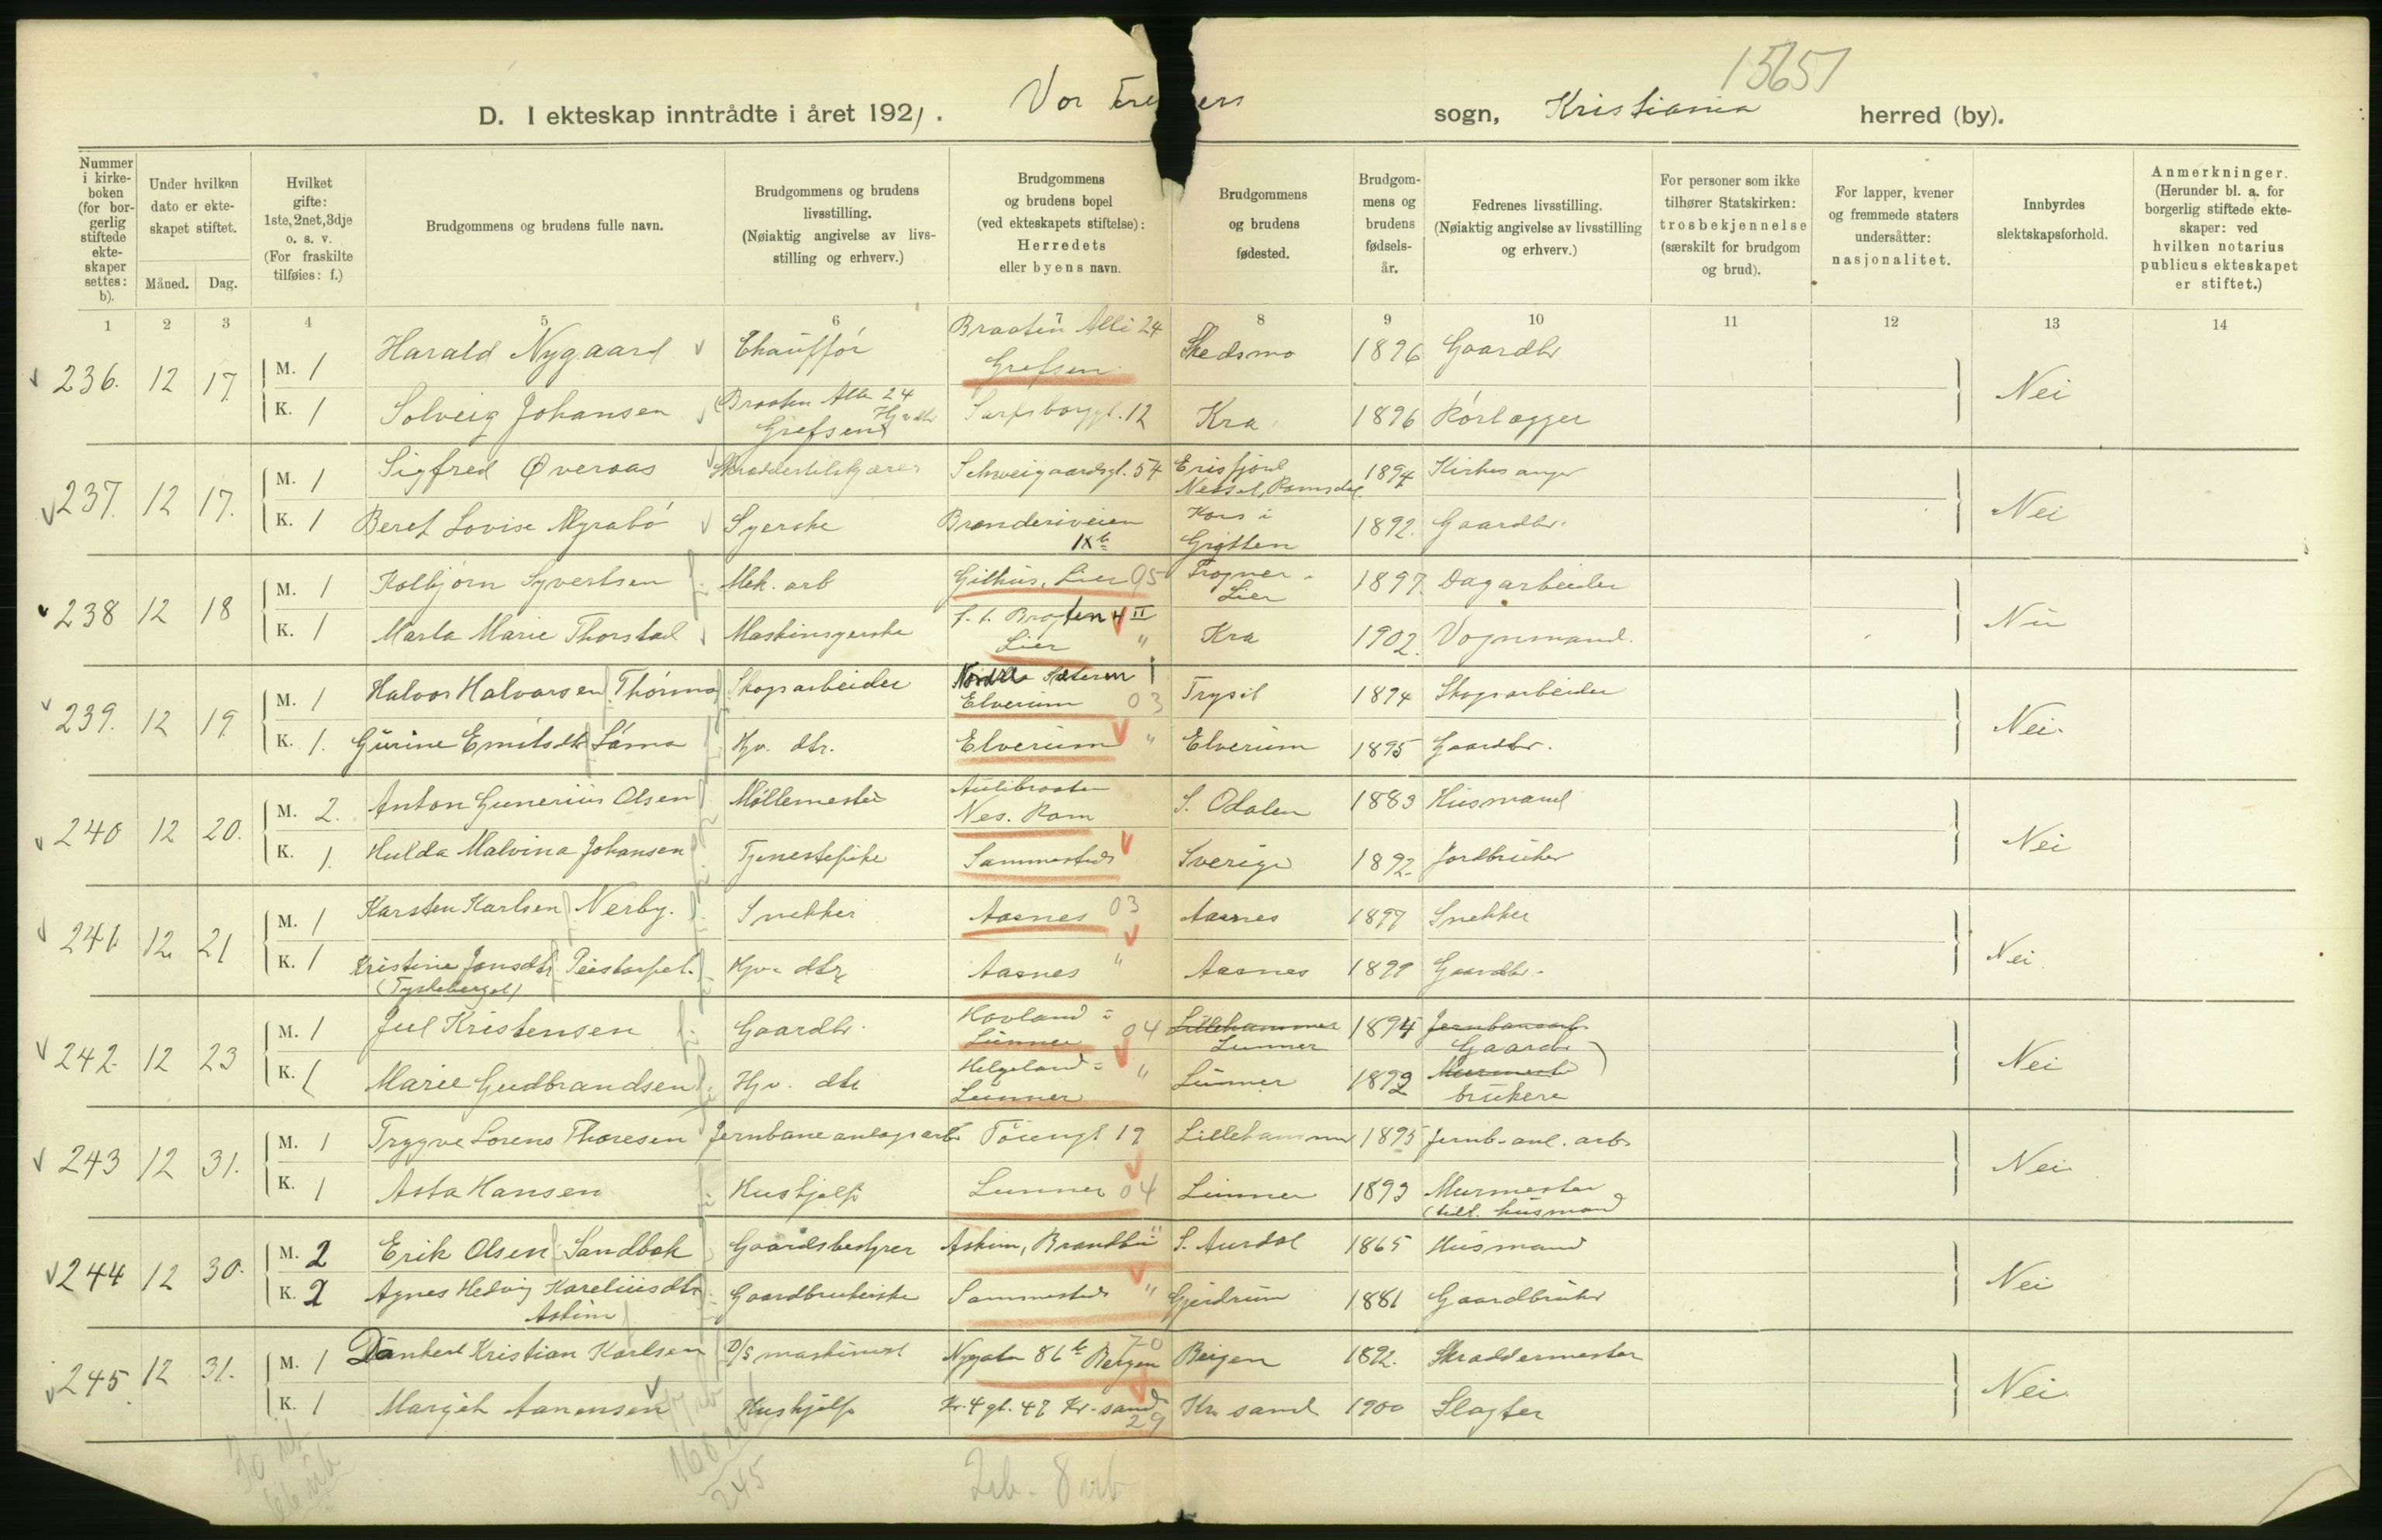 15651
D. I ekteskap inntrådte i året 1921. Vor Frelsers sogn, Kristiania herred (by).
Nummer i kirkeboken (for borgerlig stiftede ekteskaper settes: b).
Under hvilken dato er ekteskapet stiftet.
Måned. Dag.
Hvilket gifte: 1ste, 2net, 3dje o. s. v. (For fraskilte tilføies: f.)
Brudgommens og brudens fulle navn.
Brudgommens og brudens livsstilling. (Nøiaktig angivelse av livsstilling og erhverv.)
Brudgommens og brudens bopel (ved ekteskapets stiftelse): Herredets eller byens navn.
Brudgommens og brudens fødested.
Brudgommens og brudens fødselsår.
Fedrenes livsstilling. (Nøiaktig angivelse av livsstilling og erhverv.)
For personer som ikke tilhører Statskirken: trosbekjennelse (særskilt for brudgom og brud).
For lapper, kvener og fremmede staters undersåtter: nasjonalitet.
Innbyrdes slektskapsforhold.
Anmerkninger. (Herunder bl. a. for borgerlig stiftede ekteskaper: ved hvilken notarius publicus ekteskapet er stiftet.)
1 2 3 4 5 6 7 8 9 10 11 12 13 14
236. 12 17 M. 1 Harald Nygaard Chauffør Braaten Alle 24 Grefsen Skedsmo 1896 Gaardbr Nei
K. 1 Solveig Johansen Braaten Alle 24 Grefsen Hjv dtr Sarpsborggt. 12 Kra 1896 Rörlægger
237. 12 17. M. 1 Sigfred Øveraas Skræddertilskjærer Schweigaardsgt. 54 Erisfjord Nesset, Romsdal 1894 Kirkesanger Nei
K. 1 Beret Lovise Myrabö Syerske Brænderiveien IX b Kors i Grytten 1892. Gaardbr.
238 12 18 M. 1 Kolbjørn Syvertsen Mek. arb Gilhus, Lier 05 Frogner Lier 1897. Dagarbeider Nei
K. 1 Marta Marie Thorstad Maskinsyerske 4 II Lier " Kra 1902. Vognmand.
239. 12 19 M. 1 Halvor Halvorsen Skogsarbeider Sæteren i Elverum 03 Trysil 1894 Skogsarbeider Nei.
K. 1. Gurine Emilsdtr Hjv. dtr. Elverum " Elverum 1895 Gaardbr.
240 12 20. M. 2. Anton Gunerius Olsen Møllemester Aulibraaten Nes. Rom S. Odalen 1883 Husmand Nei
K. 1. Hulda Malvina Johansen Tjenestepike Sammesteds Sverige 1892. Jordbruker
241. 12. 21 M. 1 Karsten Karlsen Nerby. Snekker Aasnes 03 Aasnes 1897 Snekker Nei.
K. 1 Kristine Jonsdtr Peistorpet. (Tyskeberget) Hjv. dtr Aasnes " Aasnes 1899 Gaardbr.
242. 12 23 M. 1 Jul Kristensen Gaardbr. Hovland i Lunner 04 Lillehammer Lunner 1894 Jernbanearb. Gaard Nei
K. 1 Marie Gudbrandsen Hjv. dtr Helgeland i Lunner " Lunner 1892 Murmester brukere
243 12 31. M. 1 Trygve Lorens Thoresen Jernbaneanlægsarb Töiengt 19 Lillehammer 1895 Jernb. anl. arb. Nei
K. 1 Asta Hansen Hushjelp Lunner 04 Lunner 1893 Murmester (tidl. husmand)
244 12 30. M. 2 Erik Olsen Sandbak Gaardsbestyrer Askim, Brandbu " S. Aurdal 1865 Husmand Nei
K. 2 Agnes Hedvig Kareliusdtr Askim Gaardbrukerske Sammesteds " Gjerdrum 1881 Gaardbruker
245. 12 31. M. 1 Dankert Kristian Karlsen D/S maskinist Nygaten 86 b Bergen 20 Bergen 1892. Skræddermester Nei.
K. 1 Margit Aanensen Hushjelp Kr. 4 gt. 47 Kr.sand 29 Kr. sand 1900 Slagter
245
2 rb - 8 ub